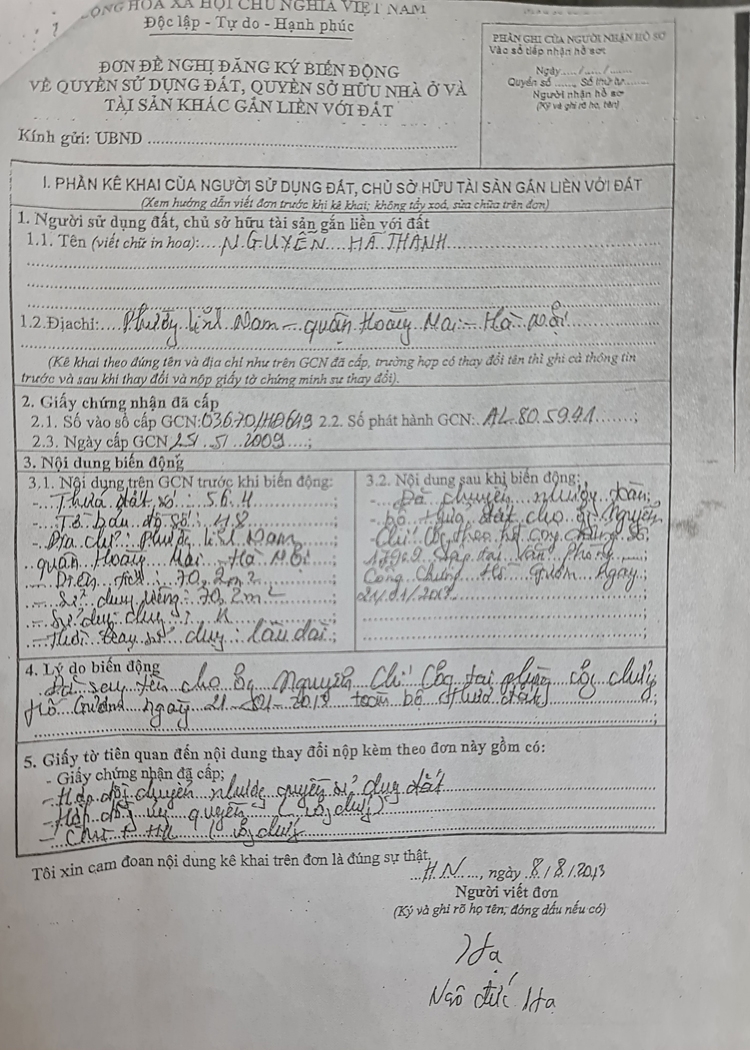 CỘNG HOÀ XÃ HỘI CHỦ NGHĨA VIỆT NAM
Độc lập - Tự do - Hạnh phúc
ĐƠN ĐỀ NGHỊ ĐĂNG KÝ BIẾN ĐỘNG
VỀ QUYỀN SỬ DỤNG ĐẤT, QUYỀN SỞ HỮU NHÀ Ở VÀ
TÀI SẢN KHÁC GẮN LIỀN VỚI ĐẤT
PHẦN GHI CỦA NGƯỜI NHẬN HỒ SƠ
Vào sổ tiếp nhận hồ sơ:
Ngày...../...../.......
Quyển số ......, Số thứ tự.......
Người nhận hồ sơ
(Ký và ghi rõ họ, tên)
Kính gửi: UBND ..........
I. PHẦN KÊ KHAI CỦA NGƯỜI SỬ DỤNG ĐẤT, CHỦ SỞ HỮU TÀI SẢN GẮN LIỀN VỚI ĐẤT
(Xem hướng dẫn viết đơn trước khi kê khai; không tẩy xoá, sửa chữa trên đơn)
1. Người sử dụng đất, chủ sở hữu tài sản gắn liền với đất
1.1. Tên (viết chữ in hoa):....NGUYỄN HÀ THANH
1.2.Địachi:....Phường Lĩnh Nam - quận Hoàng Mai - Hà Nội
(Kê khai theo đúng tên và địa chỉ như trên GCN đã cấp, trường hợp có thay đổi tên thì ghi cả thông tin
trước và sau khi thay đổi và nộp giấy tờ chứng minh sự thay đổi).
2. Giấy chứng nhận đã cấp
2.1. Số vào sổ cấp GCN: 2.2. Số phát hành GCN:..AL 805941......;
2.3. Ngày cấp GCN 25.5.2009...;
3. Nội dung biến động
3.1. Nội dung trên GCN trước khi biến động:
- Thửa đất số: 564
- Tờ bản đồ số: 48
- Địa chỉ: Phường Lĩnh Nam
quận Hoàng Mai - Hà Nội
- Diện tích: 70,2m2
- Sử dụng riêng: 70,2m2
- Sử dụng chung:
- Thời hạn sử dụng: lâu dài
3.2. Nội dung sau khi biến động:
- Đã chuyển nhượng toàn
bộ thửa đất cho ông Nguyễn
Chí Công theo hđ công chứng số
lập tại Văn Phòng
Công Chứng Hồ Gươm ngày
4. Lý do biến động
Đã sang tên cho ông Nguyễn Chí Công tại phòng công chứng
Hồ Gươm ngày toàn bộ thửa đất
5. Giấy tờ tiên quan đến nội dung thay đổi nộp kèm theo đơn này gồm có:
- Giấy chứng nhận đã cấp;
- Hợp đồng chuyển nhượng quyền sử dụng đất
- Hợp đồng ủy quyền (công chứng)
- (công chứng)
Tôi xin cam đoan nội dung kê khai trên đơn là đúng sự thật.
...H.N...., ngày 8/8/2013
Người viết đơn
(Ký và ghi rõ họ tên, đóng dấu nếu có)
Hạ
Ngô đức Hạ